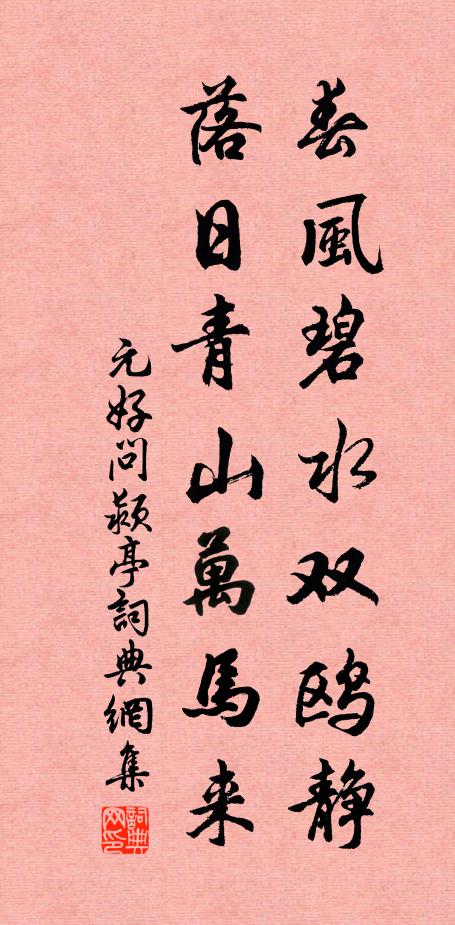 春風碧水双鸥静
落日青山萬馬来
元好問颍亭詞典網集
詞典网印